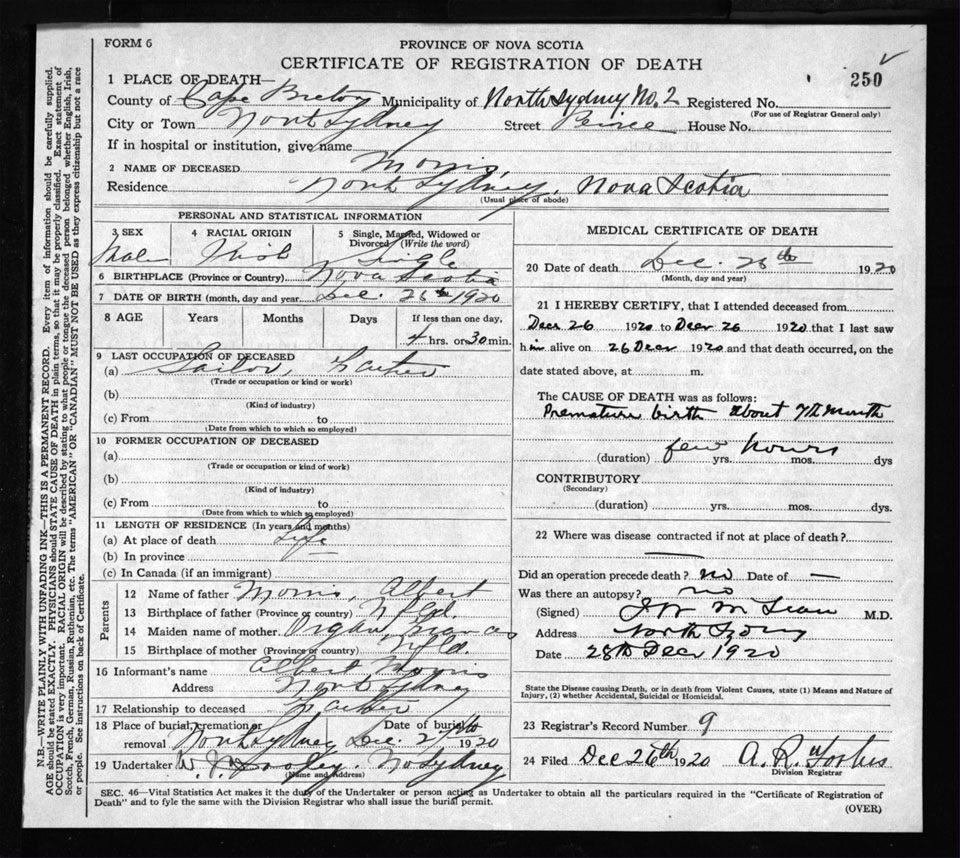 FORM 6
PROVINCE OF NOVA SCOTIA
CERTIFICATE OF REGISTRATION OF DEATH
250
1 PLACE OF DEATH—
County of Cape Breton Municipality of North Sydney No. 2 Registered No.
(For use of Registrar General only)
City or Town North Sydney Street Peirce House No.
If in hospital or institution, give name
2 NAME OF DECEASED Morris,
Residence North Sydney, Nova Scotia
(Usual place of abode)
PERSONAL AND STATISTICAL INFORMATION
3 SEX 4 RACIAL ORIGIN 5 Single, Married, Widowed or Divorced (Write the word)
Male Irish Single
6 BIRTHPLACE (Province or Country) Nova Scotia
7 DATE OF BIRTH (month, day and year) Dec. 26th 1920
8 AGE Years Months Days If less than one day,
4 hrs. or 30 min.
9 LAST OCCUPATION OF DECEASED
(a) Sailor, Father
(Trade or occupation or kind or work)
(b)
(Kind of industry)
(c) From to
(Date from which to which so employed)
10 FORMER OCCUPATION OF DECEASED
(a)
(Trade or occupation or kind of work)
(b)
(Kind of industry)
(c) From to
(Date from which to which so employed)
11 LENGTH OF RESIDENCE (In years and months)
(a) At place of death Life
(b) In province
(c) In Canada (if an immigrant)
Parents
12 Name of father Morris, Albert
13 Birthplace of father (Province or country) Nfld.
14 Maiden name of mother Organ, Frances
15 Birthplace of mother (Province or country) Nfld.
16 Informant's name Albert Morris
Address North Sydney
17 Relationship to deceased Father
18 Place of burial, cremation or Date of burial
removal North Sydney Dec. 27th 1920
19 Undertaker W. J. Dooley. No Sydney
(Name and Address)
MEDICAL CERTIFICATE OF DEATH
20 Date of death Dec. 26th 1920
(Month, day and year)
21 I HEREBY CERTIFY, that I attended deceased from
Decr 26 1920 to Decr 26 1920 that I last saw
him alive on 26 Decr 1920 and that death occurred, on the
date stated above, at m.
The CAUSE OF DEATH was as follows:
Premature birth about 7th Month
few hours
(duration) yrs. mos. dys
CONTRIBUTORY
(Secondary)
(duration) yrs. mos. dys.
22 Where was disease contracted if not at place of death?
—
Did an operation precede death? no Date of —
Was there an autopsy? no
(Signed) M.D.
Address North Sydney
Date 28th Decr 1920
State the Disease causing Death, or in death from Violent Causes, state (1) Means and Nature of
Injury, (2) whether Accidental, Suicidal or Homicidal.
23 Registrar's Record Number 9
24 Filed Dec 26th 1920 A. R. Forbes
Division Registrar
SEC. 46—Vital Statistics Act makes it the duty of the Undertaker or person acting as Undertaker to obtain all the particulars required in the "Certificate of Registration of
Death" and to fyle the same with the Division Registrar who shall issue the burial permit.
(OVER)
N.B.—WRITE PLAINLY WITH UNFADING INK—THIS IS A PERMANENT RECORD. Every item of information should be carefully supplied.
AGE should be stated EXACTLY. PHYSICIANS should STATE CAUSE OF DEATH in plain terms, so that it may be properly classified. Exact statement of
OCCUPATION is very important. RACIAL ORIGIN will be described by stating to what people or tongue the deceased person belonged whether English, Irish,
Scotch, French, German, Russian, Ruthenian, etc. The terms "AMERICAN" OR "CANADIAN" MUST NOT BE USED as they express citizenship but not a race
or people. See instructions on back of Certificate.